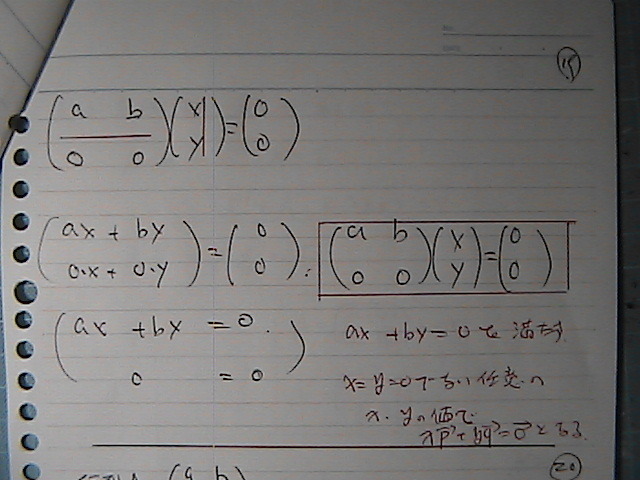 ⑮
(a b / 0 0)(x / y) = (0 / 0)
(ax + by / 0·x + 0·y) = (0 / 0). (a b / 0 0)(x / y) = (0 / 0)
(ax + by = 0. / 0 = 0)
ax + by = 0 で 満たす
x = y = 0 でない 任意の
x. yの値で
xp⃗ + yq⃗ = 0⃗ となる.
⑳
(a b